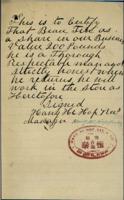 This is to Certify
That Bear Tek as
a share in our Business
Value 200 Pounds
he is a Thorough
Respectable man and
strictly honest when
he returns he will
work in the store as
Heretofore
Signed
Hang Hi
Manager